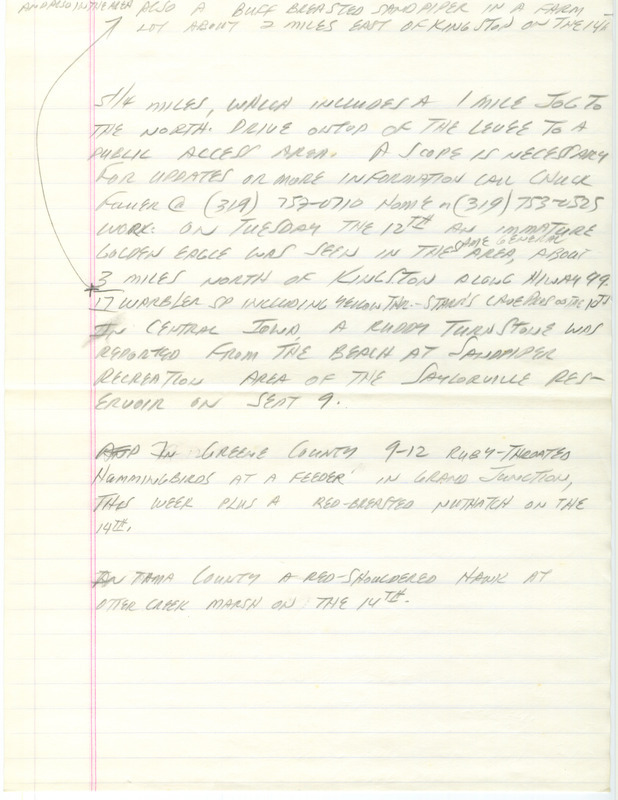 AND ALSO IN THE AREA ALSO A BUFF BREASTED SANDPIPER IN A FARM-
LOT ABOUT 2 MILES EAST OF KINGSTON ON THE 14th
5 1/4 MILES, WHICH INCLUDES A 1 MILE JOG TO
THE NORTH. DRIVE ONTOP OF THE LEVEE TO A
PUBLIC ACCESS AREA. A SCOPE IS NECESSARY
FOR UPDATES OR MORE INFORMATION CALL CHUCK
FULLER @ (319) 753-0710 HOME OR (319) 753-0525
WORK. ON TUESDAY THE 12TH AN IMMATURE
GOLDEN EAGLE WAS SEEN IN THE SAME GENERAL AREA, ABOUT
3 MILES NORTH OF KINGSTON ALONG HIWAY 99.
17 WARBLER SP INCLUDING YELLOW THR.- STARR'S CAVE ON THE 10TH
IN CENTRAL IOWA, A RUDDY TURNSTONE WAS
REPORTED FROM THE BEACH AT SANDPIPER
RECREATION AREA OF THE SAYLORVILLE RES-
ERVOIR ON SEPT 9.
AND IN GREENE COUNTY 9-12 RUBY-THROATED
HUMMINGBIRDS AT A FEEDER IN GRAND JUNCTION,
THIS WEEK PLUS A RED-BREASTED NUTHATCH ON THE
14TH.
IN TAMA COUNTY A RED-SHOULDERED HAWK AT
OTTER CREEK MARSH ON THE 14TH.